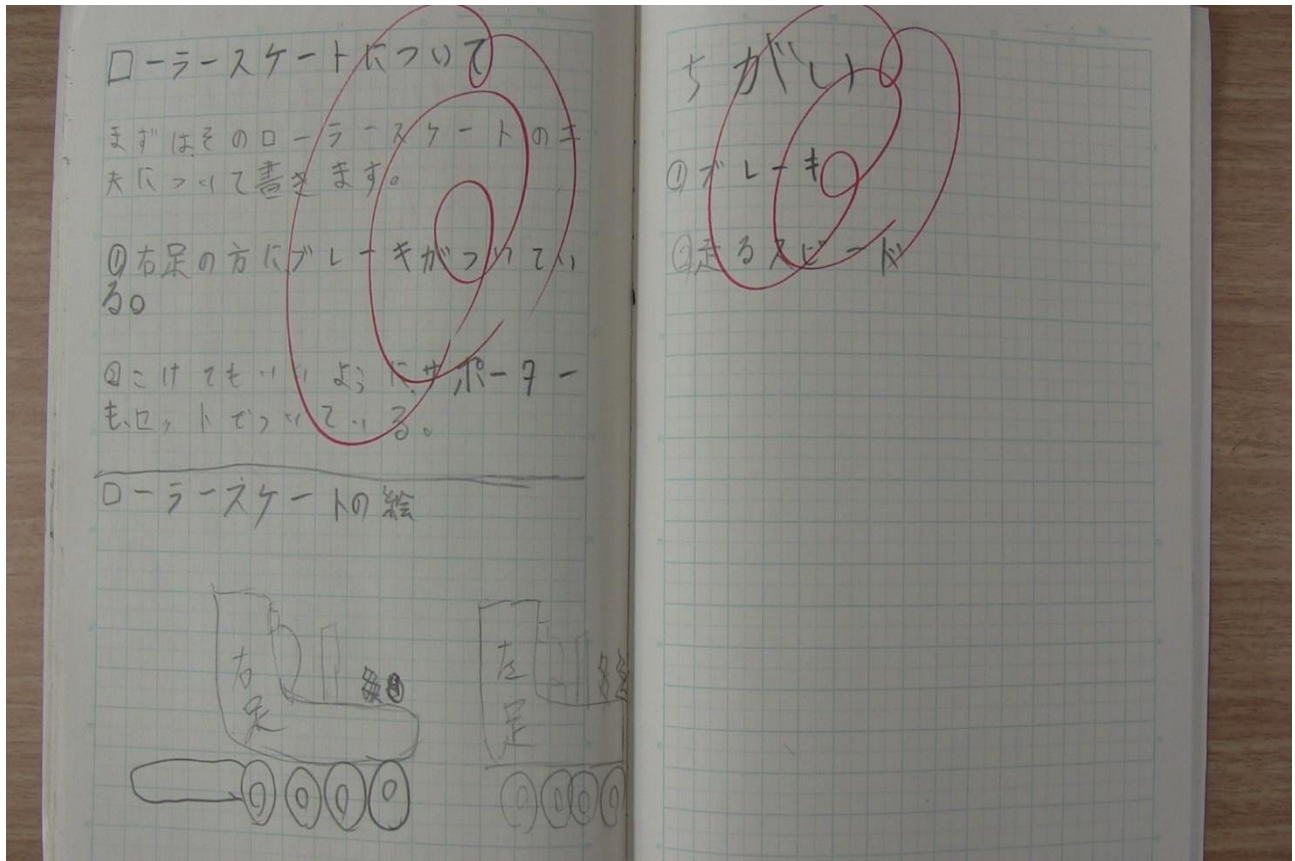 ローラースケートについて
まずはそのローラースケートの工
夫について書きます。
①右足の方にブレーキがついてい
る。
②こけてもいいようにサポーター
も、セットでついている。
ローラースケートの絵
右足
左足
ちがい
①ブレーキ
②走るスピード